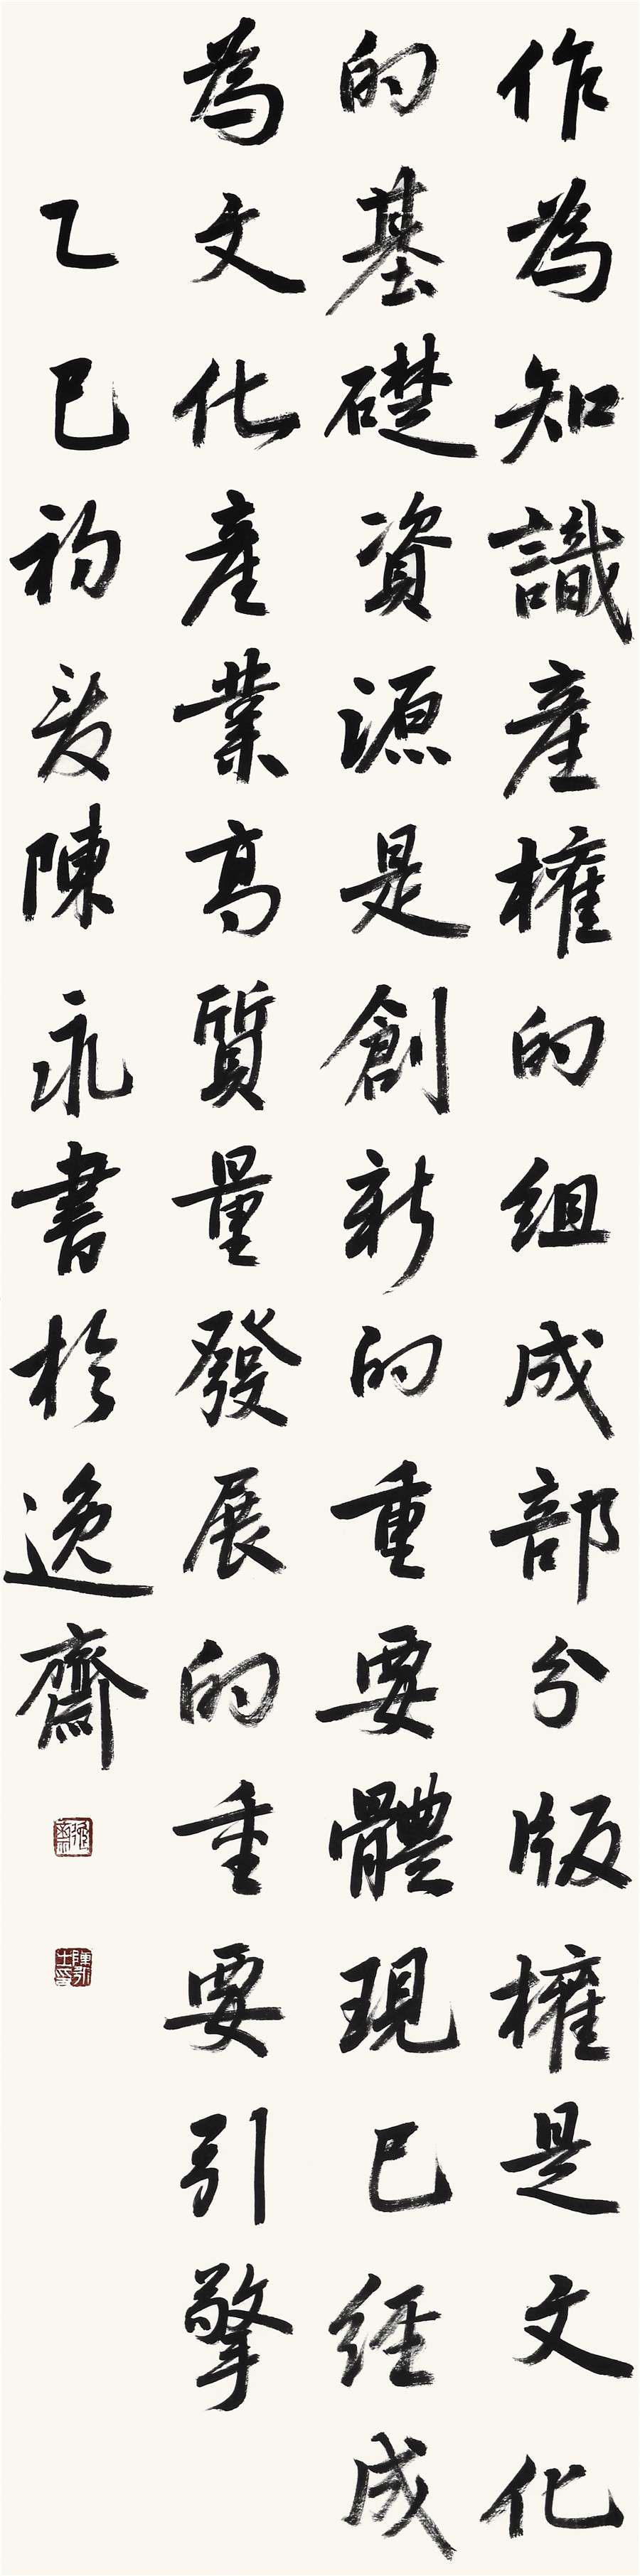 作為知識產權的組成部分版權是文化
的基礎資源是創新的重要體現已經成
為文化產業高質量發展的重要引擎
乙巳初夏陳永書於逸齋
逸齋